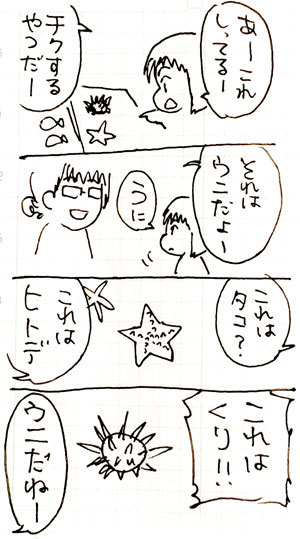 あーこれ
しってるー
チクする
やつだー
それは
ウニだよー
うに
これは
タコ？
これは
ヒトデ
これは
くり!!
ウニだねー